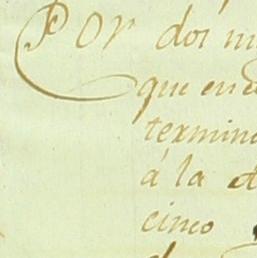 Por dos
que en
termin
á la
cinco